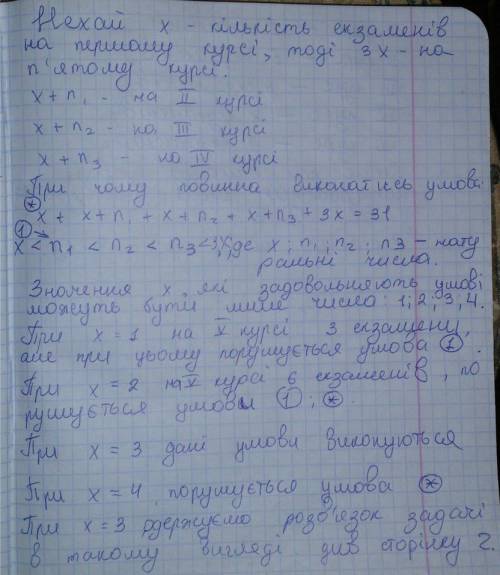 Нехай x - кількість екзаменів
на першому курсі, тоді 3x - на
п'ятому курсі.
x + n₁ - на II курсі
x + n₂ - на III курсі
x + n₃ - на IV курсі
При чому повинна виконатись умова
* x + x + n₁ + x + n₂ + x + n₃ + 3x = 31
① x < n₁ < n₂ < n₃ < 3x, де x; n₁; n₂; n3 - нату
ральні числа.
Значення x, які задовольняють умові
можуть бути лише числа 1; 2; 3, 4.
При x = 1 на V курсі 3 екзамени,
але при цьому порушується умова ①.
При x = 2 на V курсі 6 екзаменів, по
рушується умови ①; *.
При x = 3 дані умови виконуються
При x = 4 порушується умова *
При x = 3 одержуємо розв'язок задачі
в такому вигляді див сторінку 2.